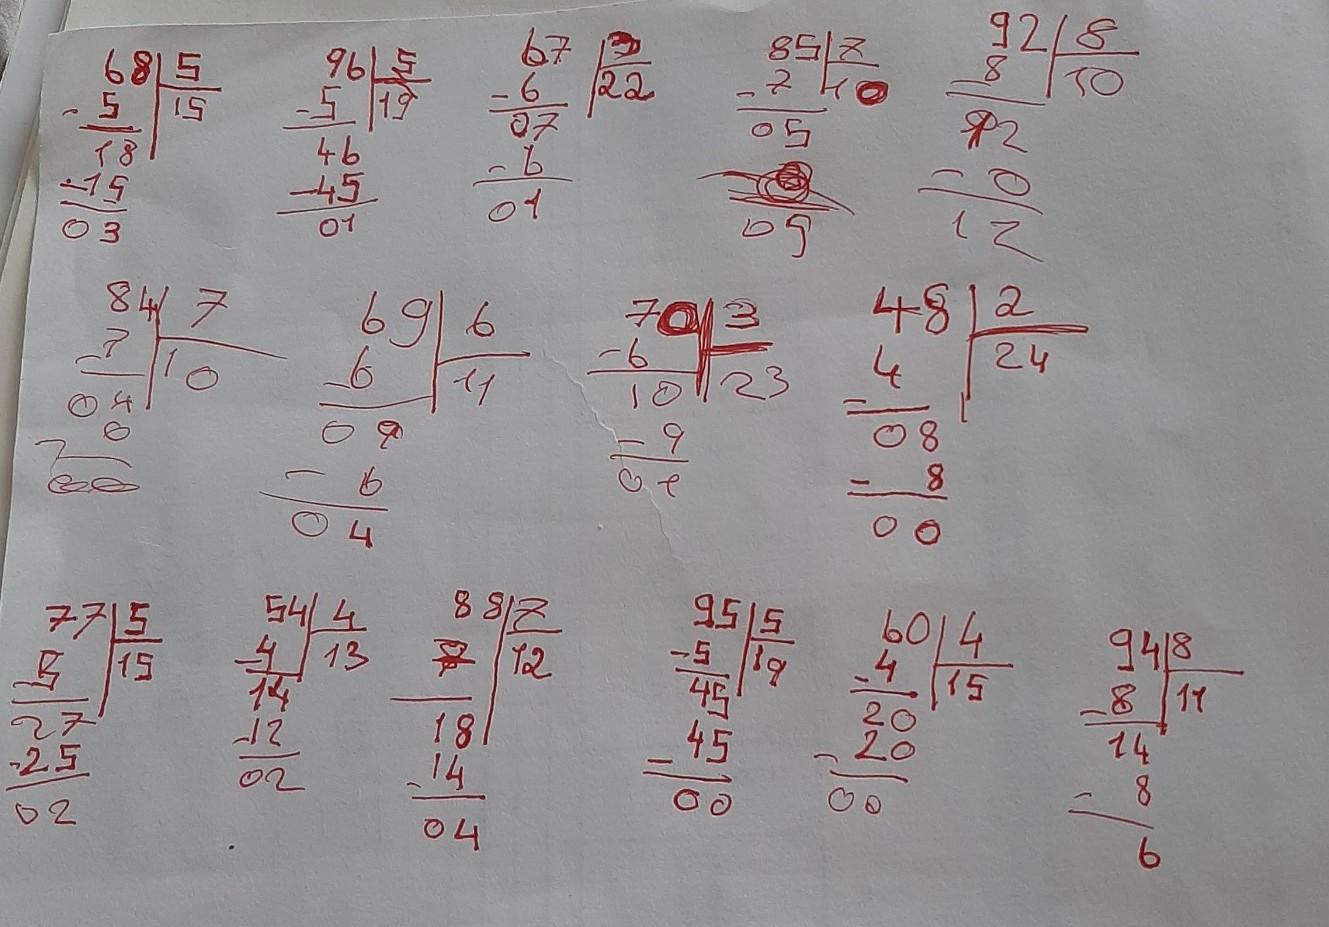 68 5 96 5 67 3 85 7 92 8
-5 15 -5 19 -6 22 -7 10 -8 10
18 46 07 05 12
-15 -45 -6 - 0
03 01 01 05 12
84 7 69 6 70 3 48 2
-7 10 -6 11 -6 23 -4 24
04 09 10 08
0 - 6 - 9 - 8
04 01 00
77 5 54 4 88 7 95 5 60 4 94 8
-5 15 -4 13 7 12 -5 19 -4 15 -8 11
27 14 18 45 20 14
-25 -12 -14 -45 -20 - 8
02 02 04 00 00 6